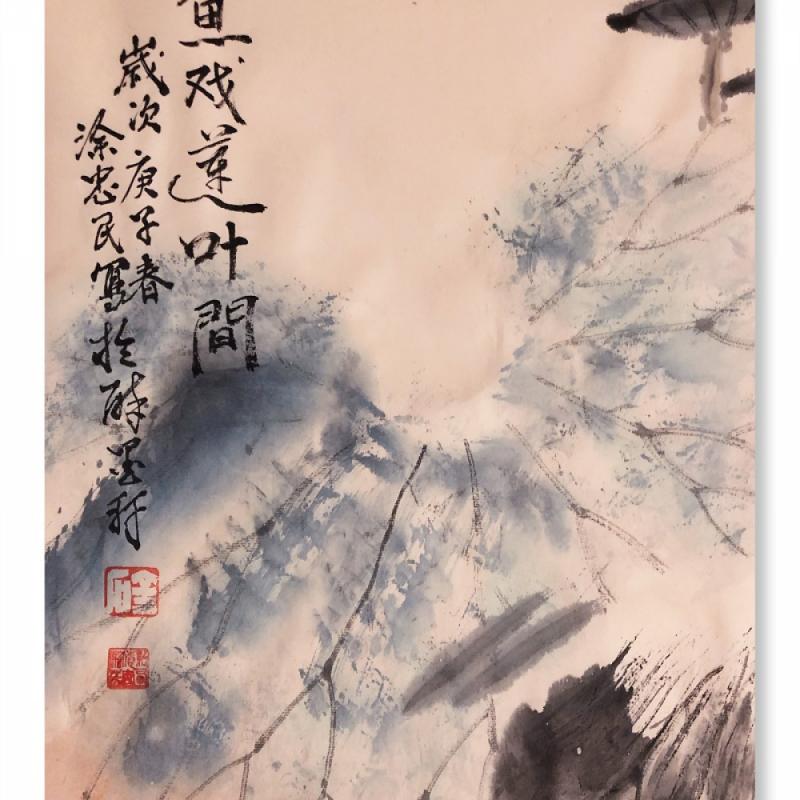 魚戏蓮叶間
歲次庚子春
涂忠民寫於醉墨轩